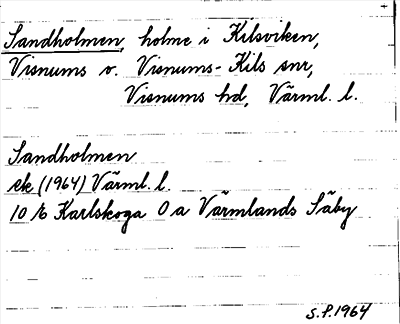 Sandholmen, holme i Kilsviken,
Visnums o. Visnums-Kils snr,
Visnums hd, Värml. l.
Sandholmen
ek (1964) Värml. l.
10 E Karlskoga 0 a Värmlands Säby
S.P. 1964